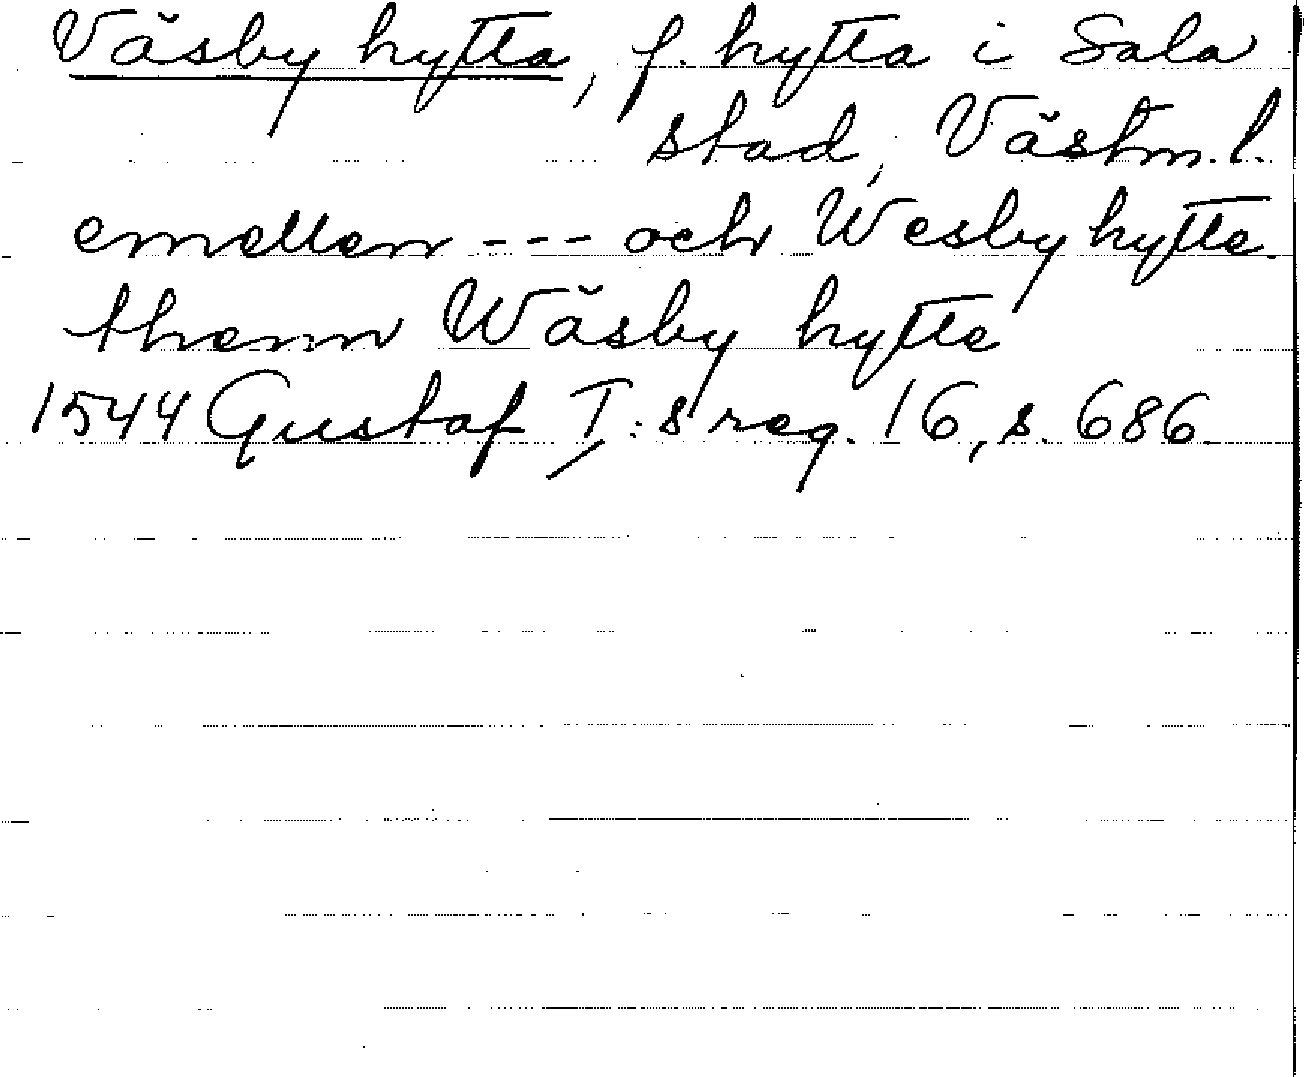 Väsby hytta, f. hytta i Sala
stad, Västm. l.
emellen --- och Wesby hytte.
thenn Wäsby hytte
1544 Gustaf I:s reg. 16, s. 686.